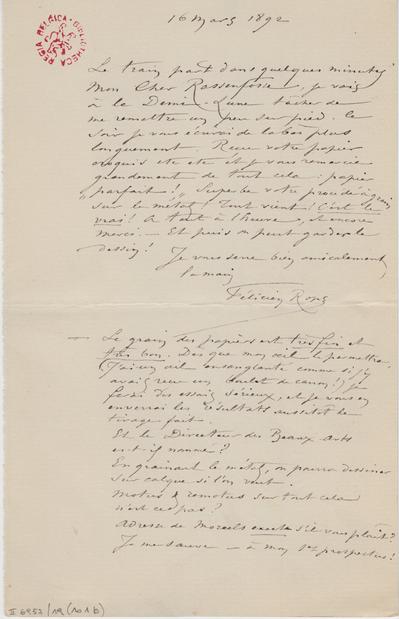 16 Mars 1892
REGIA BELGICA · BIBLIOTHECA
Le train part dans quelques minutes
Mon Cher Rassenfosse, je vais
à la Demi-Lune tâcher de
me remettre un peu sur pied. Ce
soir je vous écrirai de là bas plus
longuement. Reçu votre papier
croquis etc etc et je vous remercie
grandement de tout cela : papier
"parfait !" Superbe votre procédé à grain
sur le métal ! Tout vient ! C'est le
vrai ! A tout à l'heure, et encore
merci. — Et puis on peut garder le
dessin !
Je vous serre bien amicalement
la main
Félicien Rops
— Le grain des papiers est très fin et
très bon. Dès que mon oeil le permettra
(J'ai un oeil ensanglanté comme si j'y
avais reçu un boulet de canon !) je
ferai des essais sérieux, et je vous en
enverrai les résultats aussitot le
tirage fait.
Et le Directeur des Beaux-Arts
est-il nommé ?
En grainant le métal, on pourra dessiner
sur calque si l'on veut.
Motus & remotus sur tout cela
n'est ce pas ?
Adresse de Morcels exacte s'il vous plaît ?
Je me sauve — à mon 1er prospectus !
II 6957/19 (101b)